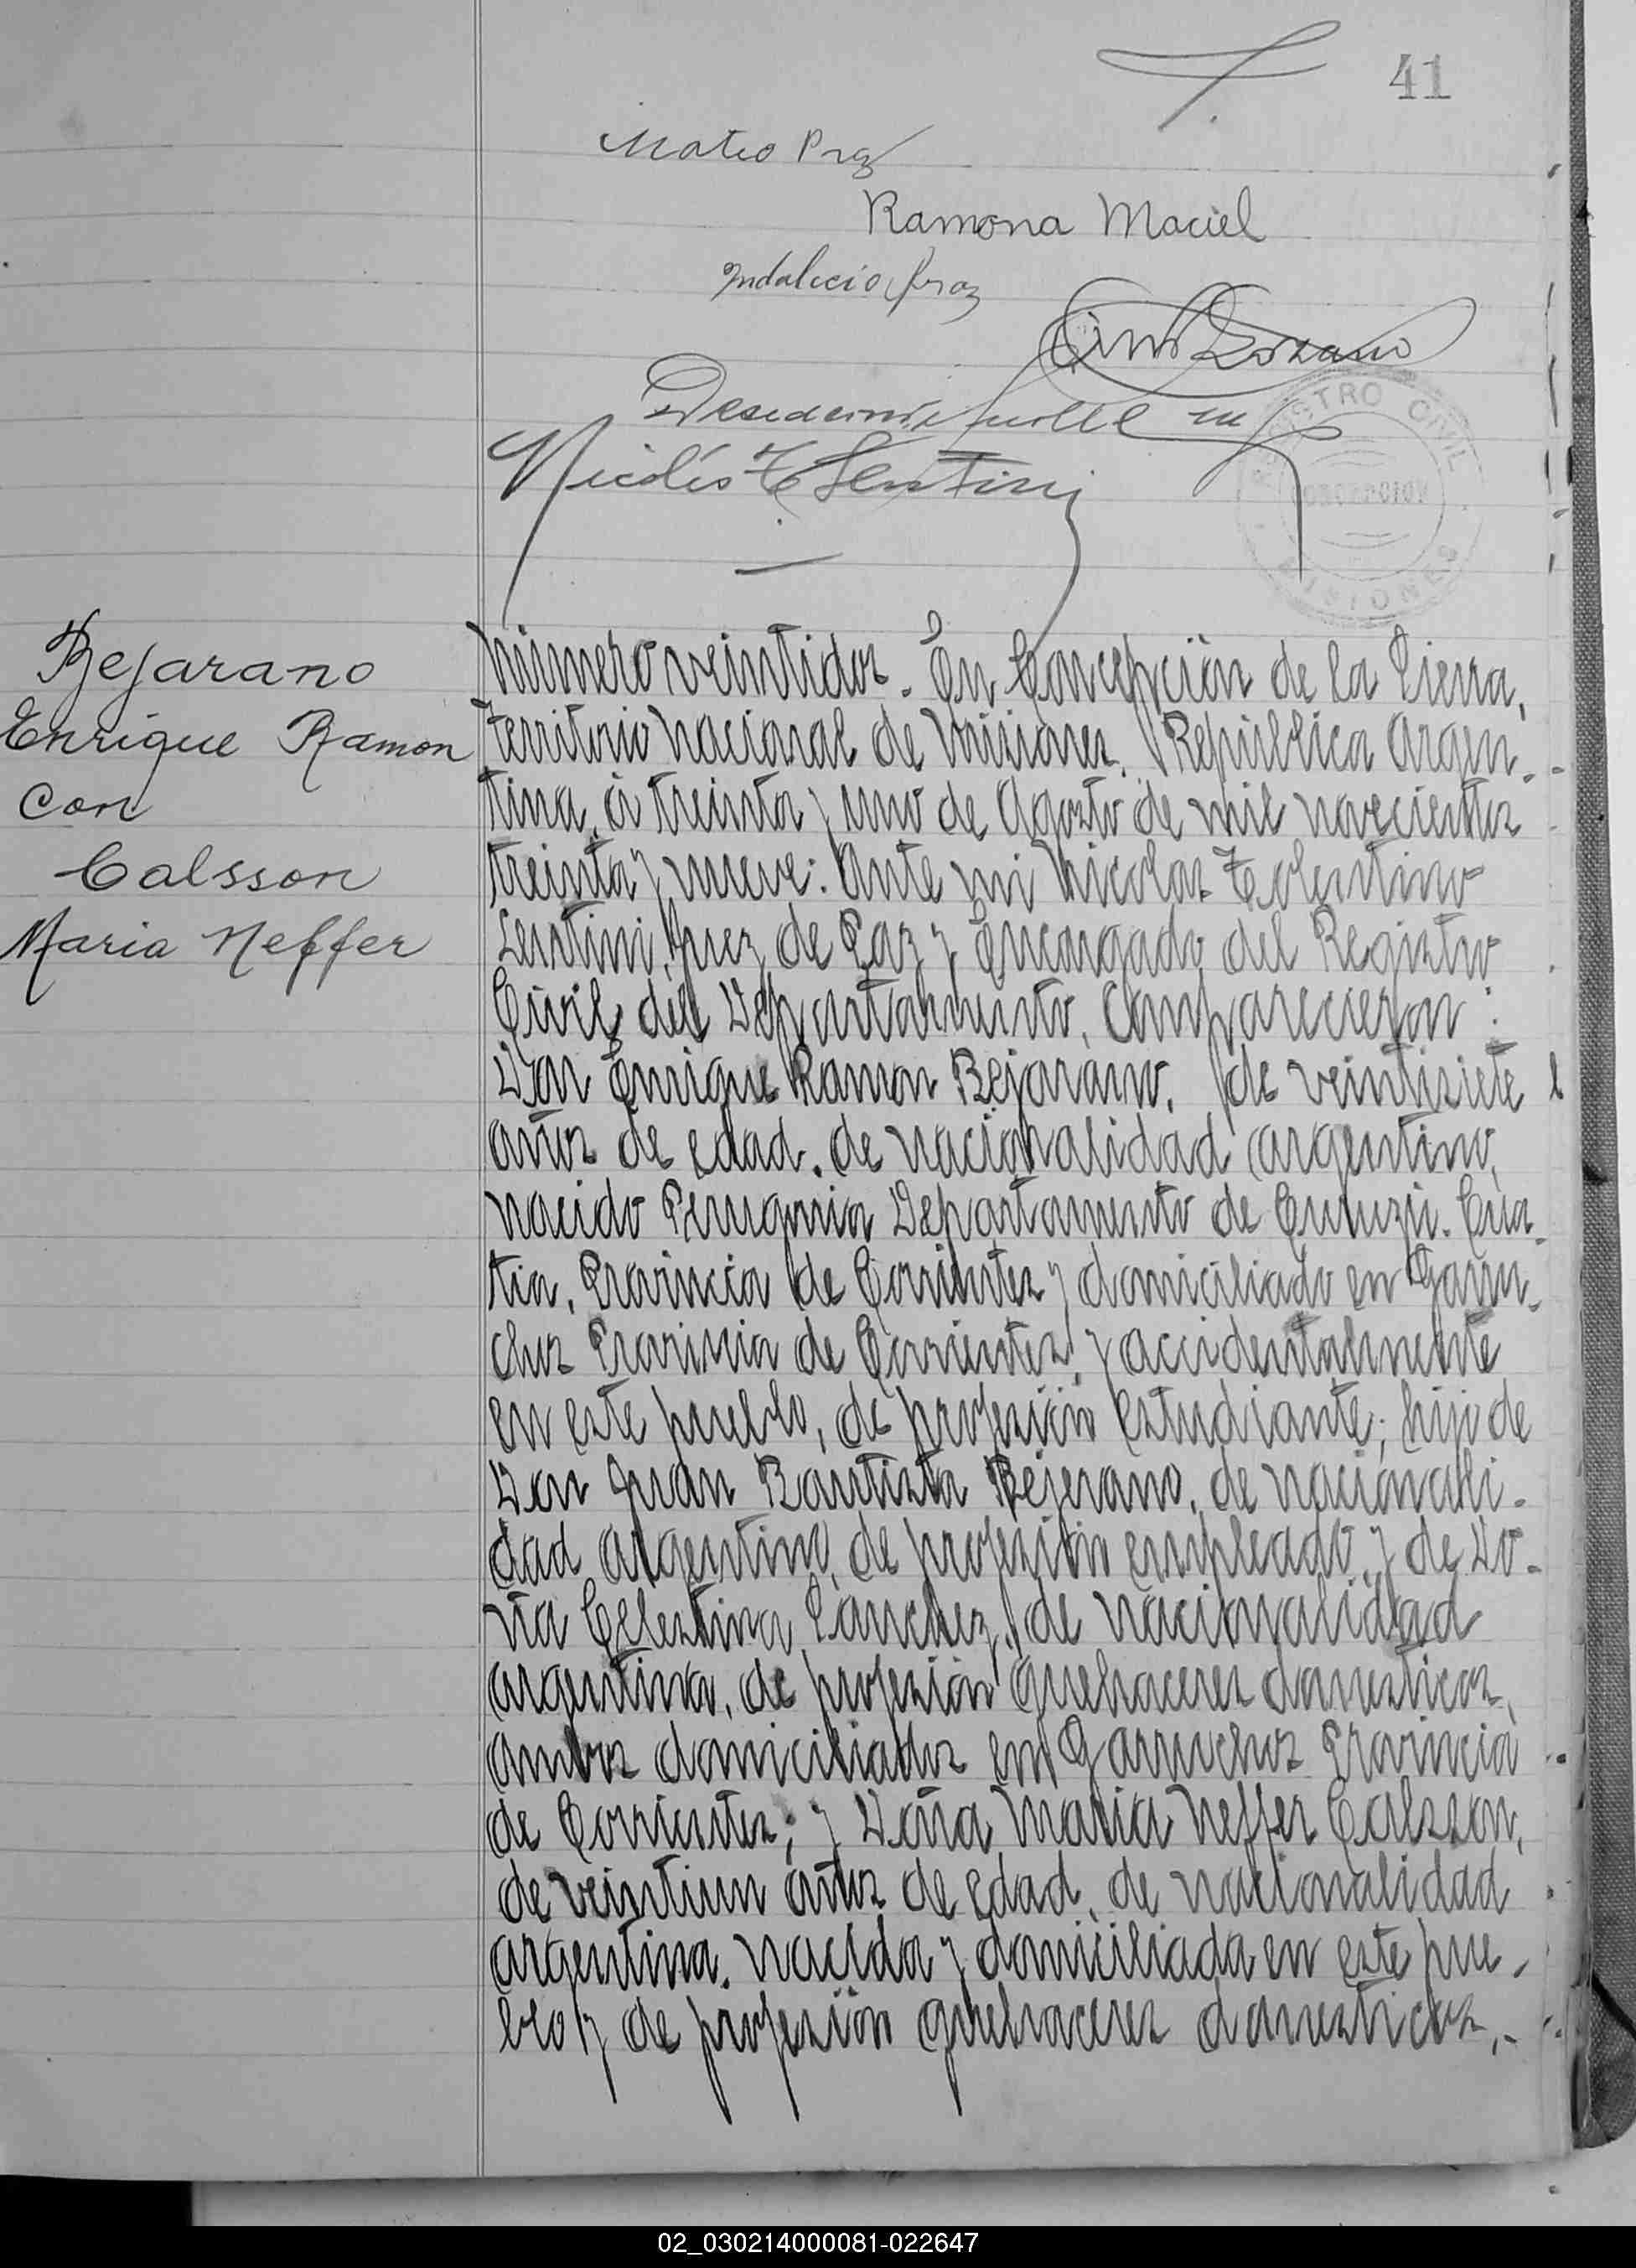 41
Mateo
Ramona Maciel
Indalecio
Lozano
Nicolás T. Lentini
REGISTRO CIVIL
CONCEPCION
MISIONES
Bejarano
Enrique Ramon
Con
Calsson
Maria Neffer
Número veintidos. En Concepción de la Sierra,
Territorio Nacional de Misiones, República Argen-
tina, á treinta y uno de Agosto de mil novecientos
treinta y nueve: Ante mi Nicolas Tolentino
Lentini, Juez de Paz y Encargado del Registro
Civil del Departamento, Comparecieron:
Don Enrique Ramon Bejarano, de veintisiete
años de edad, de nacionalidad argentino,
nacido Departamento de Curuzú-Cua-
tia, Provincia de Corrientes y domiciliado en Garru-
chos Provincia de Corrientes, y accidentalmente
en este pueblo, de profesión estudiante; hijo de
Don Juan Bautista Bejerano, de nacionali-
dad argentino, de profesión empleado, y de Do-
ña Celestina Sanchez, de nacionalidad
argentina, de profesión quehaceres domesticos,
ambos domiciliados en Garruchos Provincia
de Corrientes; y Doña Maria Neffer Calsson,
de veintiun años de edad, de nacionalidad
argentina, nacida y domiciliada en este pue-
blo y de profesión quehaceres domesticos,-
02_030214000081-022647